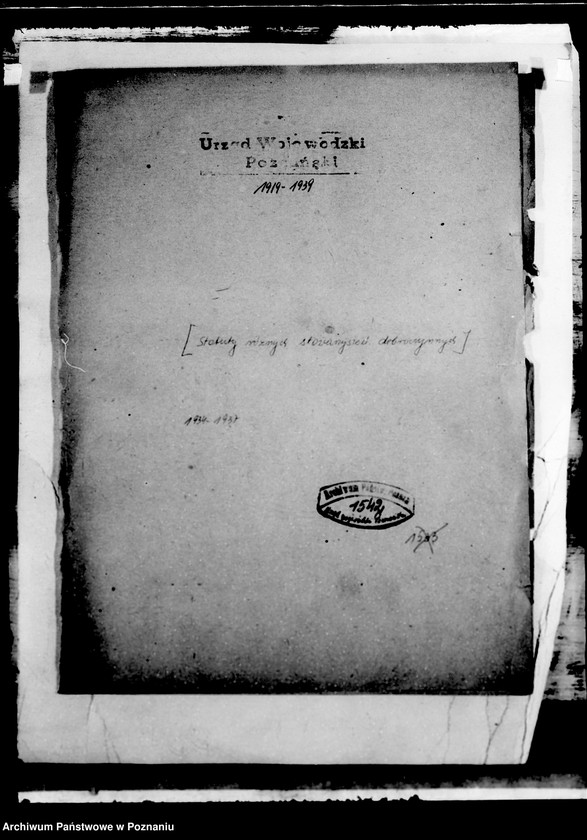 Urząd Wojewódzki
Poznański
1919-1939
[Statuty różnych stowarzyszeń dobroczynnych]
1934-1937
1542
Archiwum Państwowe w Poznaniu